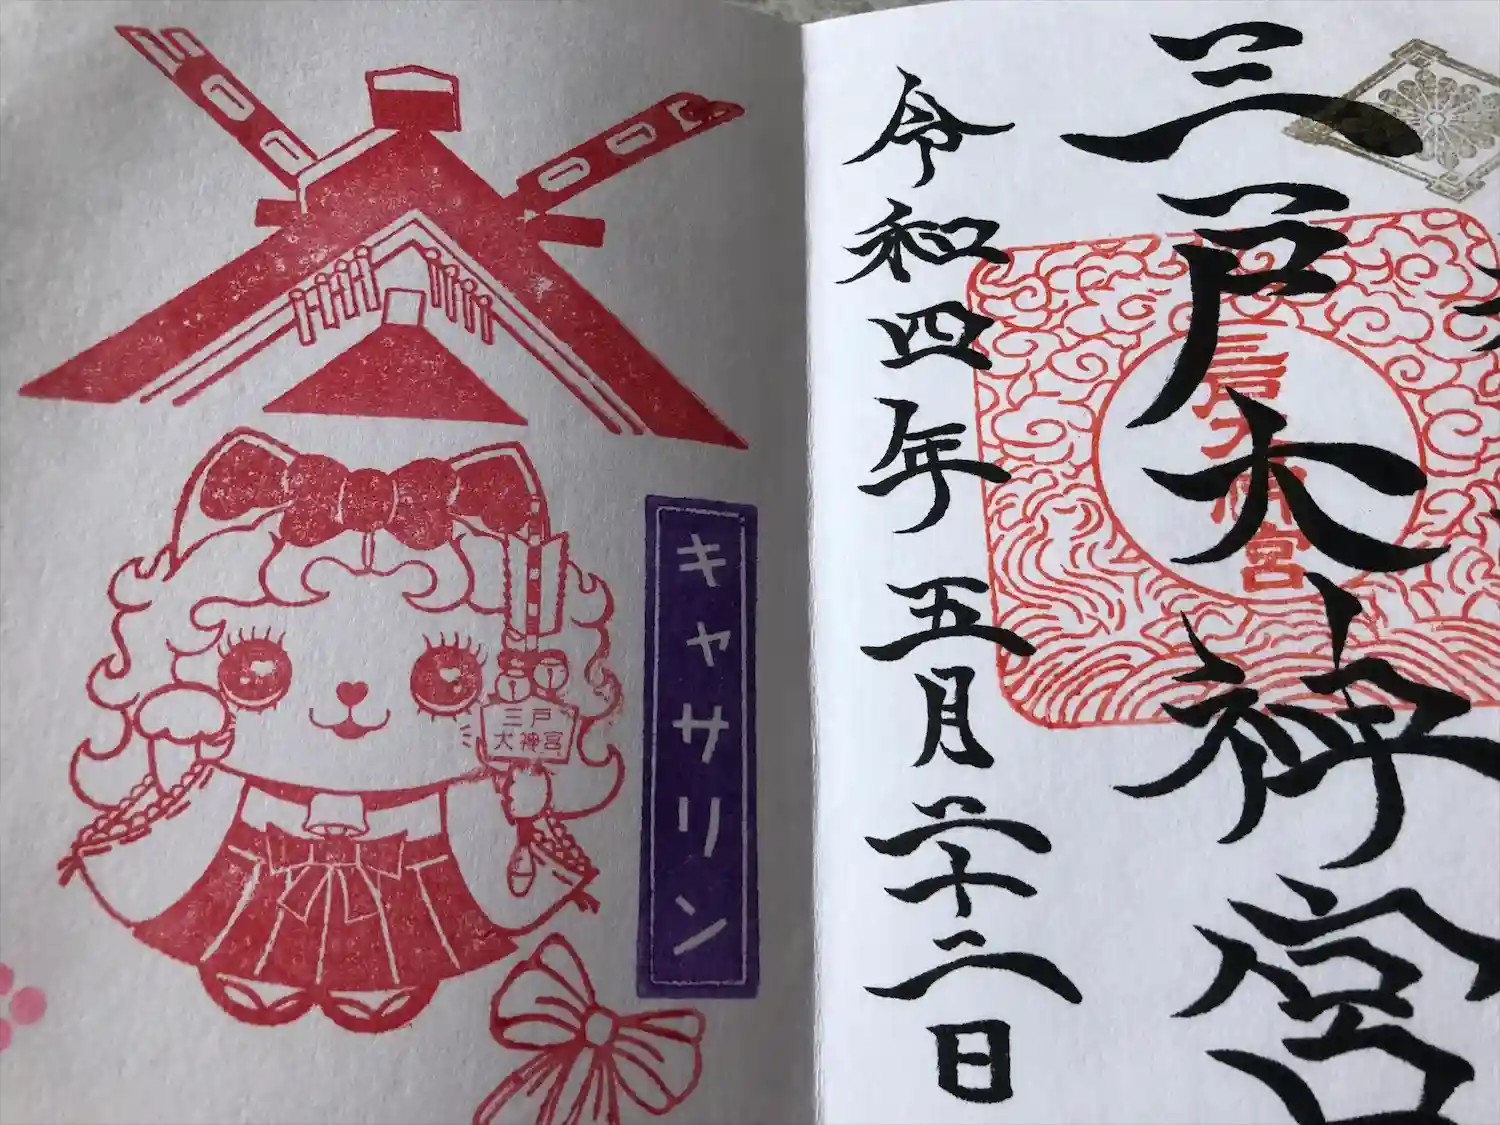 三戸大神宮
三戸大神宮
令和四年五月二十二日
キャサリン
三戸
大神宮